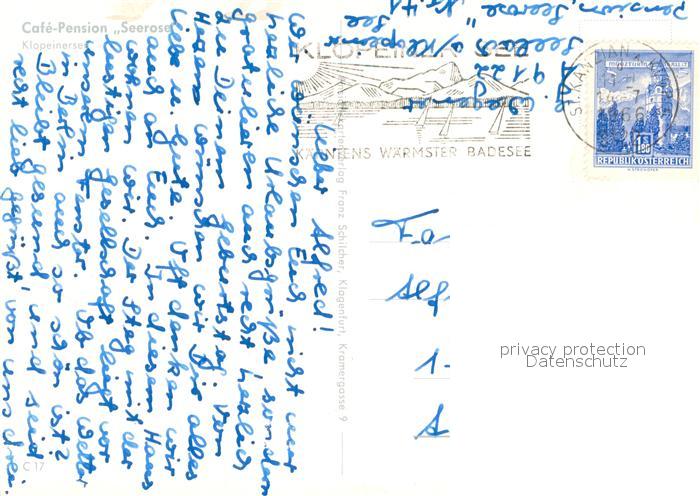 Café-Pension „Seerose"
Klopeinersee
Pension „Seerose"
Seelach a/Klopeiner
See
9122
KLOPEINER SEE
KÄRNTENS WÄRMSTER BADESEE
ST. KANZIAN
REPUBLIK ÖSTERREICH
Lieber Alfred!
Wir wünschen Euch nicht nur
herzliche Urlaubsgrüße sondern
gratulieren auch recht herzlich
zu Deinem Geburtstag. Vom
Herzen wünschen wir Dir alles
Liebe u. Gute. Oft denken wir
auch an Euch. In diesem Haus
wohnen wir. Der Steg mit der
lustigen Gesellschaft liegt vor
unserem Fenster. Ob das Wetter
in Bayern auch so schön ist?
Bleibt gesund, und seid
recht lieb gegrüßt, von uns drei.
Verlag Franz Schilcher, Klagenfurt, Kramergasse 9
C 17
privacy protection
Datenschutz